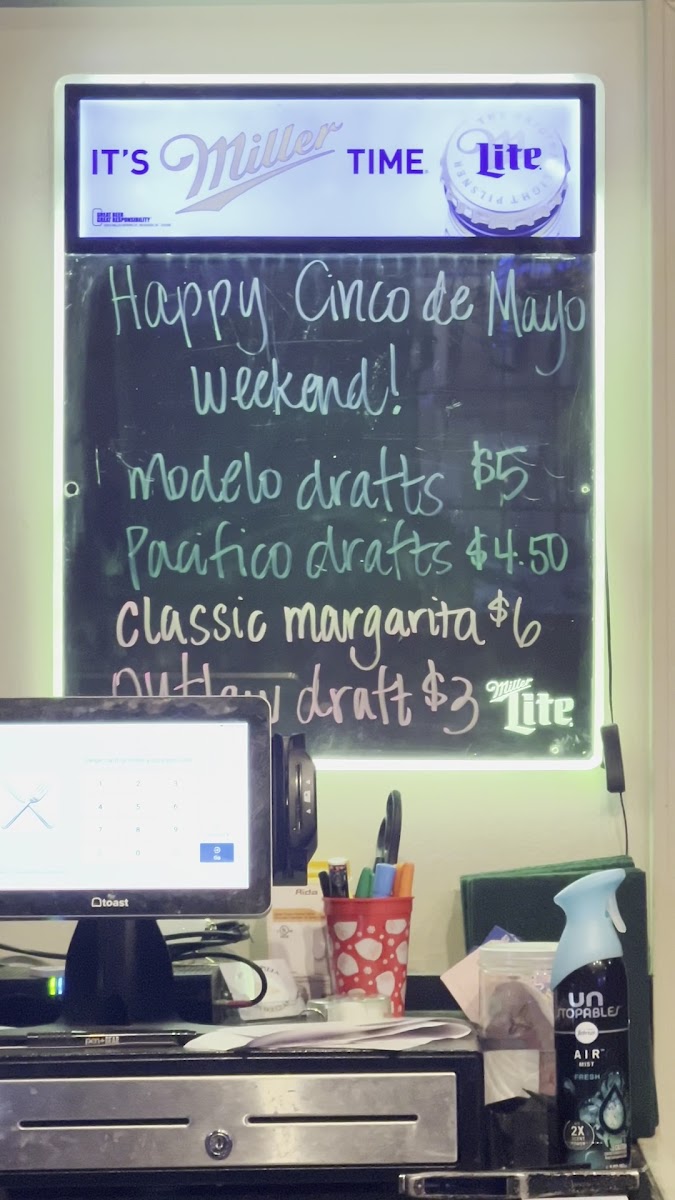 IT'S Miller TIME
Lite
GREAT BEER
GREAT RESPONSIBILITY
Happy Cinco de Mayo
Weekend!
Modelo drafts $5
Pacifico drafts $4.50
Classic margarita $6
Outlaw draft $3
Miller
Lite
1 2 3
4 5 6
7 8 9
0
toast
UN
STOPABLES
AIR
MIST
FRESH
2X